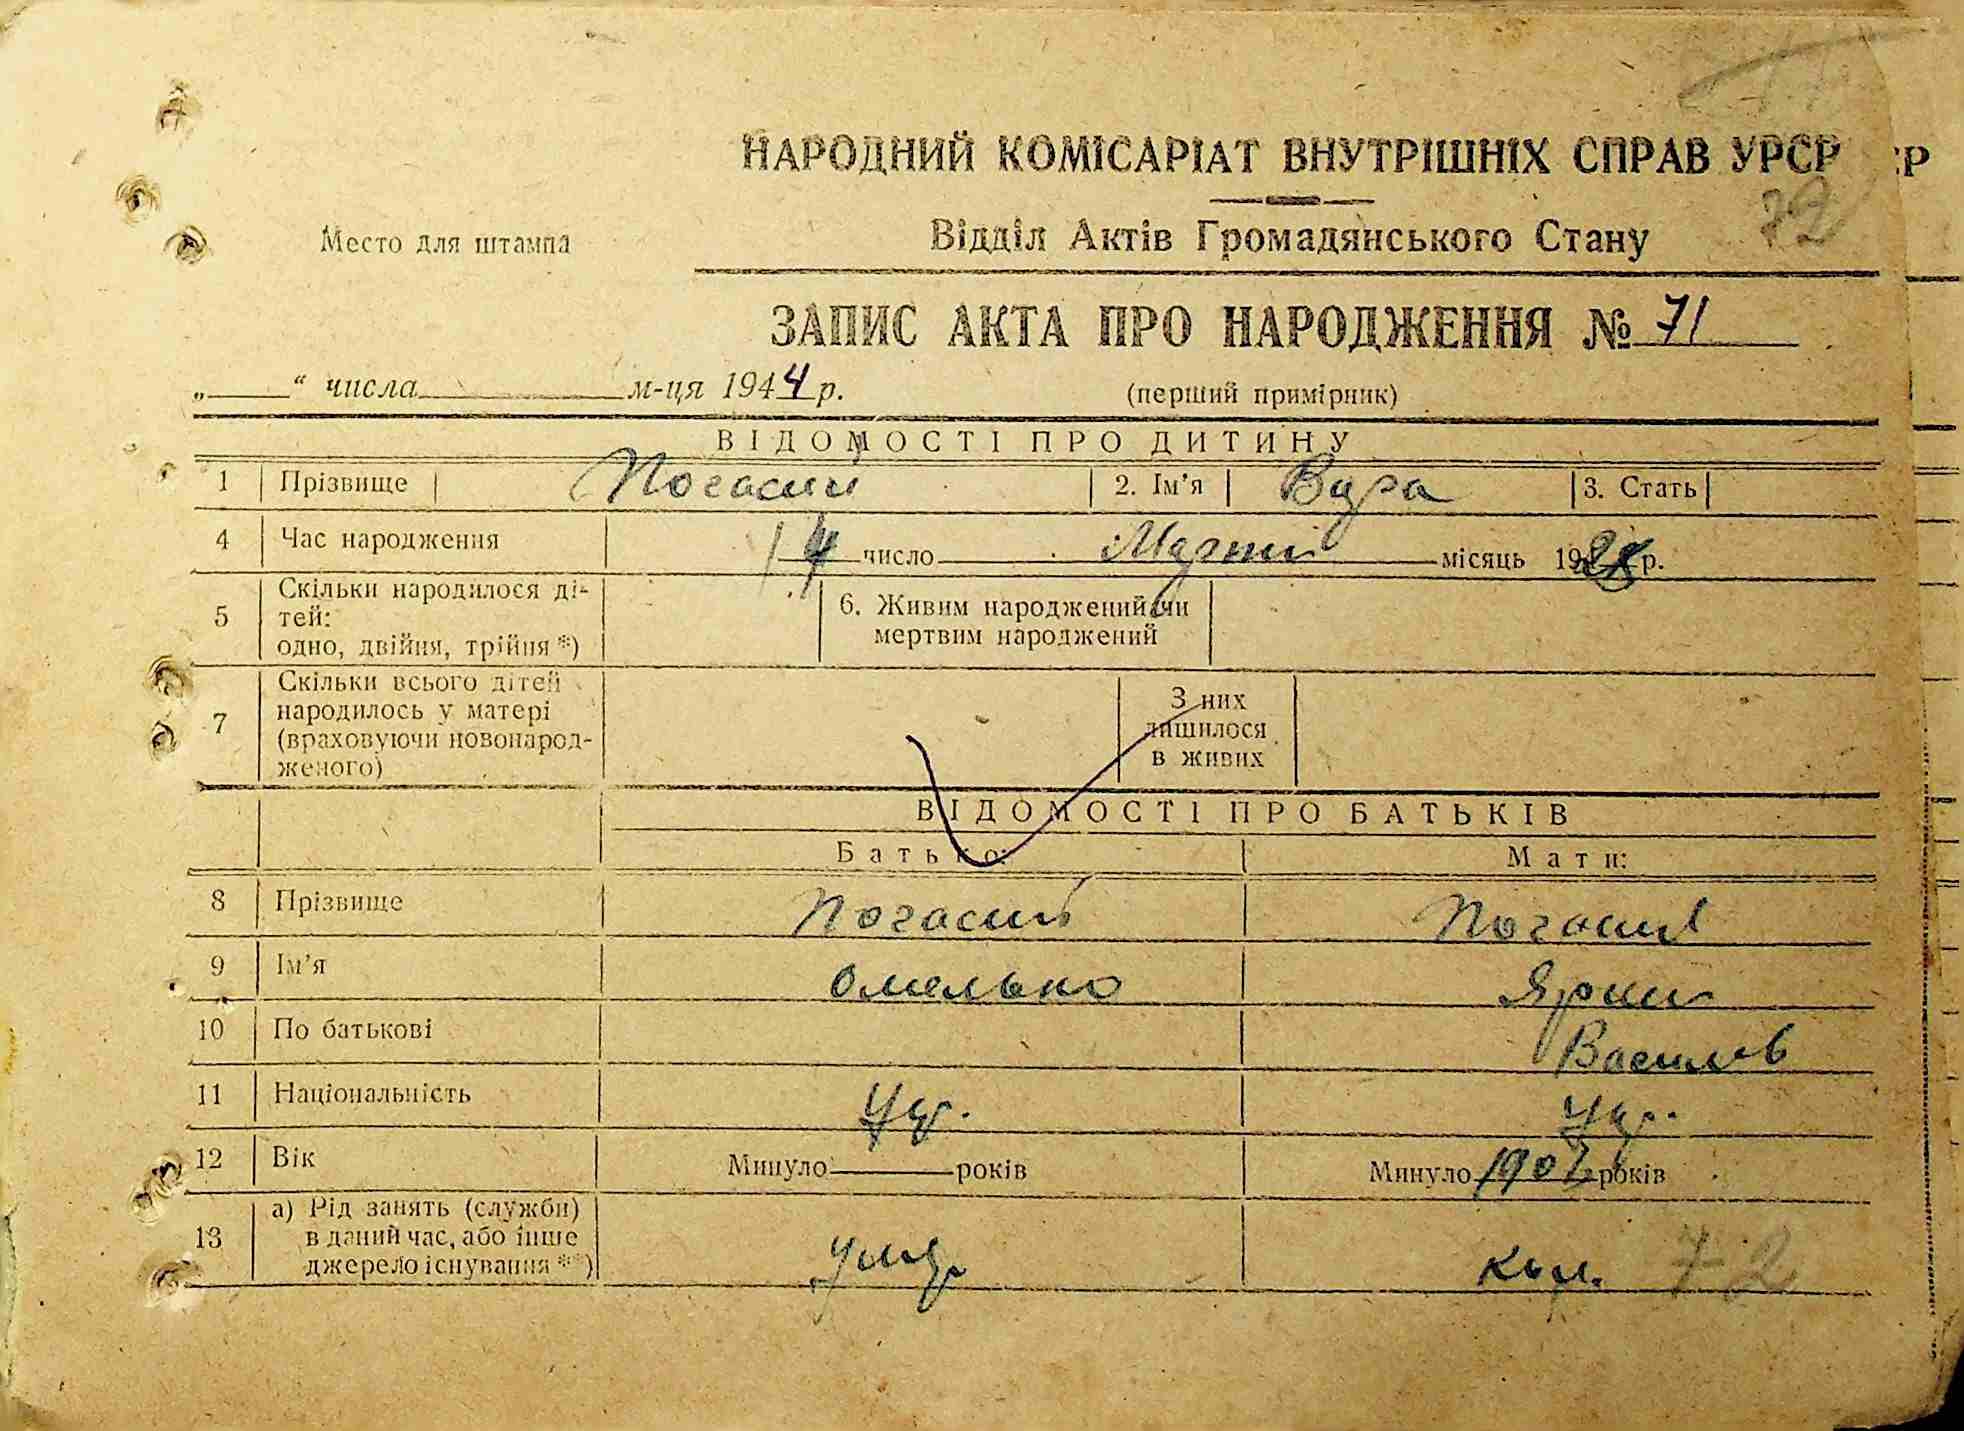 НАРОДНИЙ КОМІСАРІАТ ВНУТРІШНІХ СПРАВ УРСР ЄР
72
Место для штампа
Відділ Актів Громадянського Стану
ЗАПИС АКТА ПРО НАРОДЖЕННЯ № 71
„ “ числа м-ця 1944 р. (перший примірник)
ВІДОМОСТІ ПРО ДИТИНУ
1 Прізвище Погасий 2. Ім’я Вера 3. Стать
4 Час народження 14 число місяць 19 р.
5 Скільки народилося ді-
тей:
одно, двійня, трійня *)
6. Живим народжений чи
мертвим народжений
7 Скільки всього дітей
народилось у матері
(враховуючи новонарод-
женого)
З них
лишилося
в живих
ВІДОМОСТІ ПРО БАТЬКІВ
Батько: Мати:
8 Прізвище Погасий Погасий
9 Ім’я Омелько
10 По батькові Василів
11 Національність Укр. Укр.
12 Вік Минуло років Минуло 1902 років
13 а) Рід занять (служби)
в даний час, або інше
джерело існування **)
умер
72